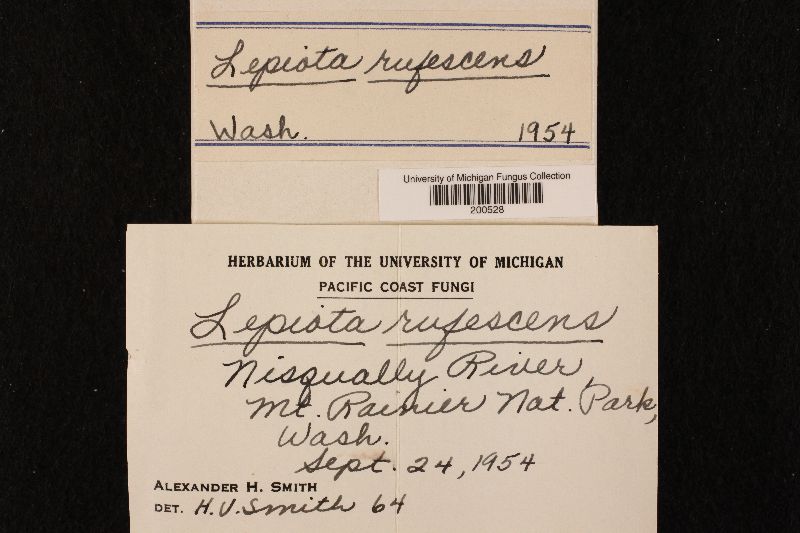 Lepiota rufescens
Wash. 1954
University of Michigan Fungus Collection
200528
HERBARIUM OF THE UNIVERSITY OF MICHIGAN
PACIFIC COAST FUNGI
Lepiota rufescens
Nisqually River,
Mt. Rainier Nat. Park,
Wash.
Sept. 24, 1954
ALEXANDER H. SMITH
DET. H.V. Smith 64